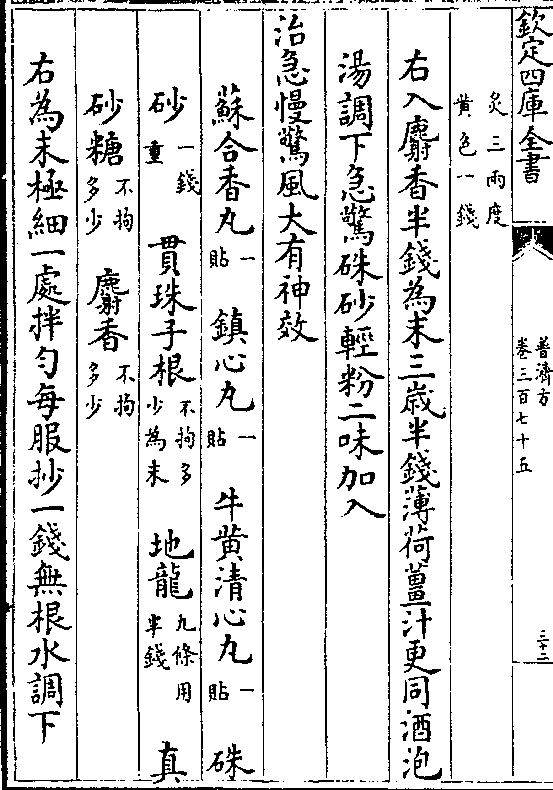 欽定四庫全書
普濟方
卷三百七十五
三十二
炙三兩度
黄色一錢
右入麝香半錢為末三歲半錢薄荷薑汁更同酒泡
湯調下急驚硃砂輕粉二味加入
治急慢驚風大有神效
蘇合香丸一貼 鎮心丸一貼 牛黄清心丸一貼 硃
砂一錢重 貫珠子根不拘多少為末 地龍九條用半錢 真
砂糖不拘多少 麝香不拘多少
右為末極細一處拌勻每服抄一錢無根水調下